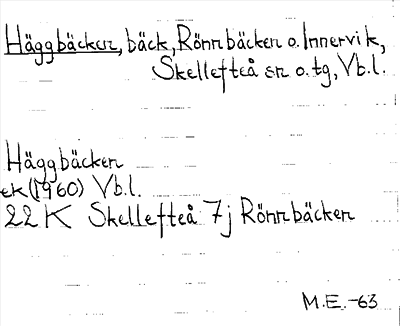 Häggbäcken, bäck, Rönnbäcken o. Innervik,
Skellefteå sn o. tg, Vb.l.
Häggbäcken
ek (1960) Vb.l.
22 K Skellefteå 7j Rönnbäcken
M.E.-63